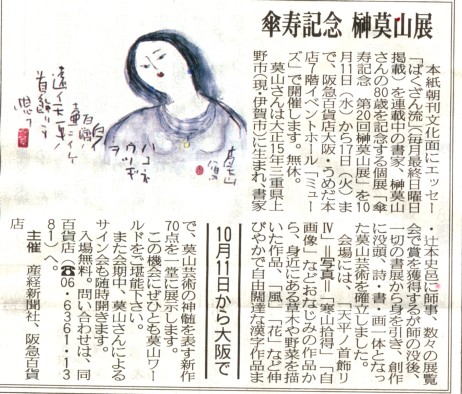 傘寿記念 榊莫山展
本紙朝刊文化面にエッセー
「ばくざん流」(毎月最終日曜日
掲載)を連載中の書家、榊莫山
さんの80歳を記念する個展「傘
寿記念 第20回榊莫山展」を10
月11日(水)から17日(火)ま
で、阪急百貨店大阪・うめだ本
店7階イベントホール「ミュー
ズ」で開催します。無休。
莫山さんは大正15年三重県上
野市(現・伊賀市)に生まれ、書家
・辻本史邑に師事、数々の展覧
会で賞を獲得するが師の没後、
一切の書展から身を引き、創作
に没頭、詩・書・画一体となっ
た莫山芸術を確立しました。
会場には、「天平ノ首飾リ
Ⅳ」=写真=「寒山拾得」「自
画像」などおなじみの作品か
ら、身近にある草木や野菜を描
いた作品、「風」「花」など伸
びやかで自由闊達な漢字作品ま
10月11日から大阪で
で、莫山芸術の神髄を表す新作
70点を一堂に展示します。
この機会にぜひとも莫山ワー
ルドをご堪能下さい。
また会期中、莫山さんによる
サイン会も随時開きます。
入場無料。問い合わせは、同
百貨店(☎06・6361・13
81)へ。
主催 産経新聞社、阪急百貨
店